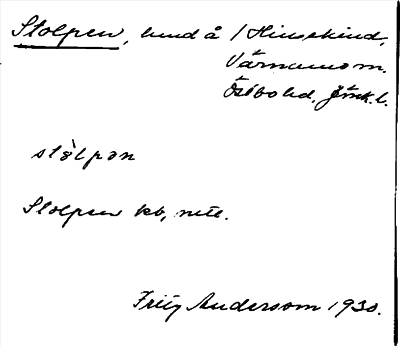 Stolpen, hund å / Hinsekind,
Värnamo m.
Östbo hd, Jönk. l.
stòlpən
Stolpen kb,
Fritz Anderson 1930.